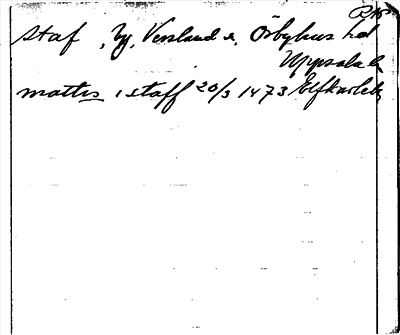 Staf, by, Vessland s, Örbyhus hd
Uppsala l.
mattes i staff 20/3 1473 Elfkarleb